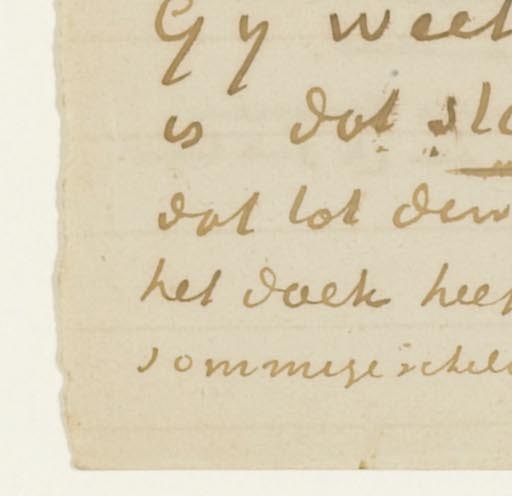 Gy weet
is dat sla
dat tot den
het doek heef
sommige schild